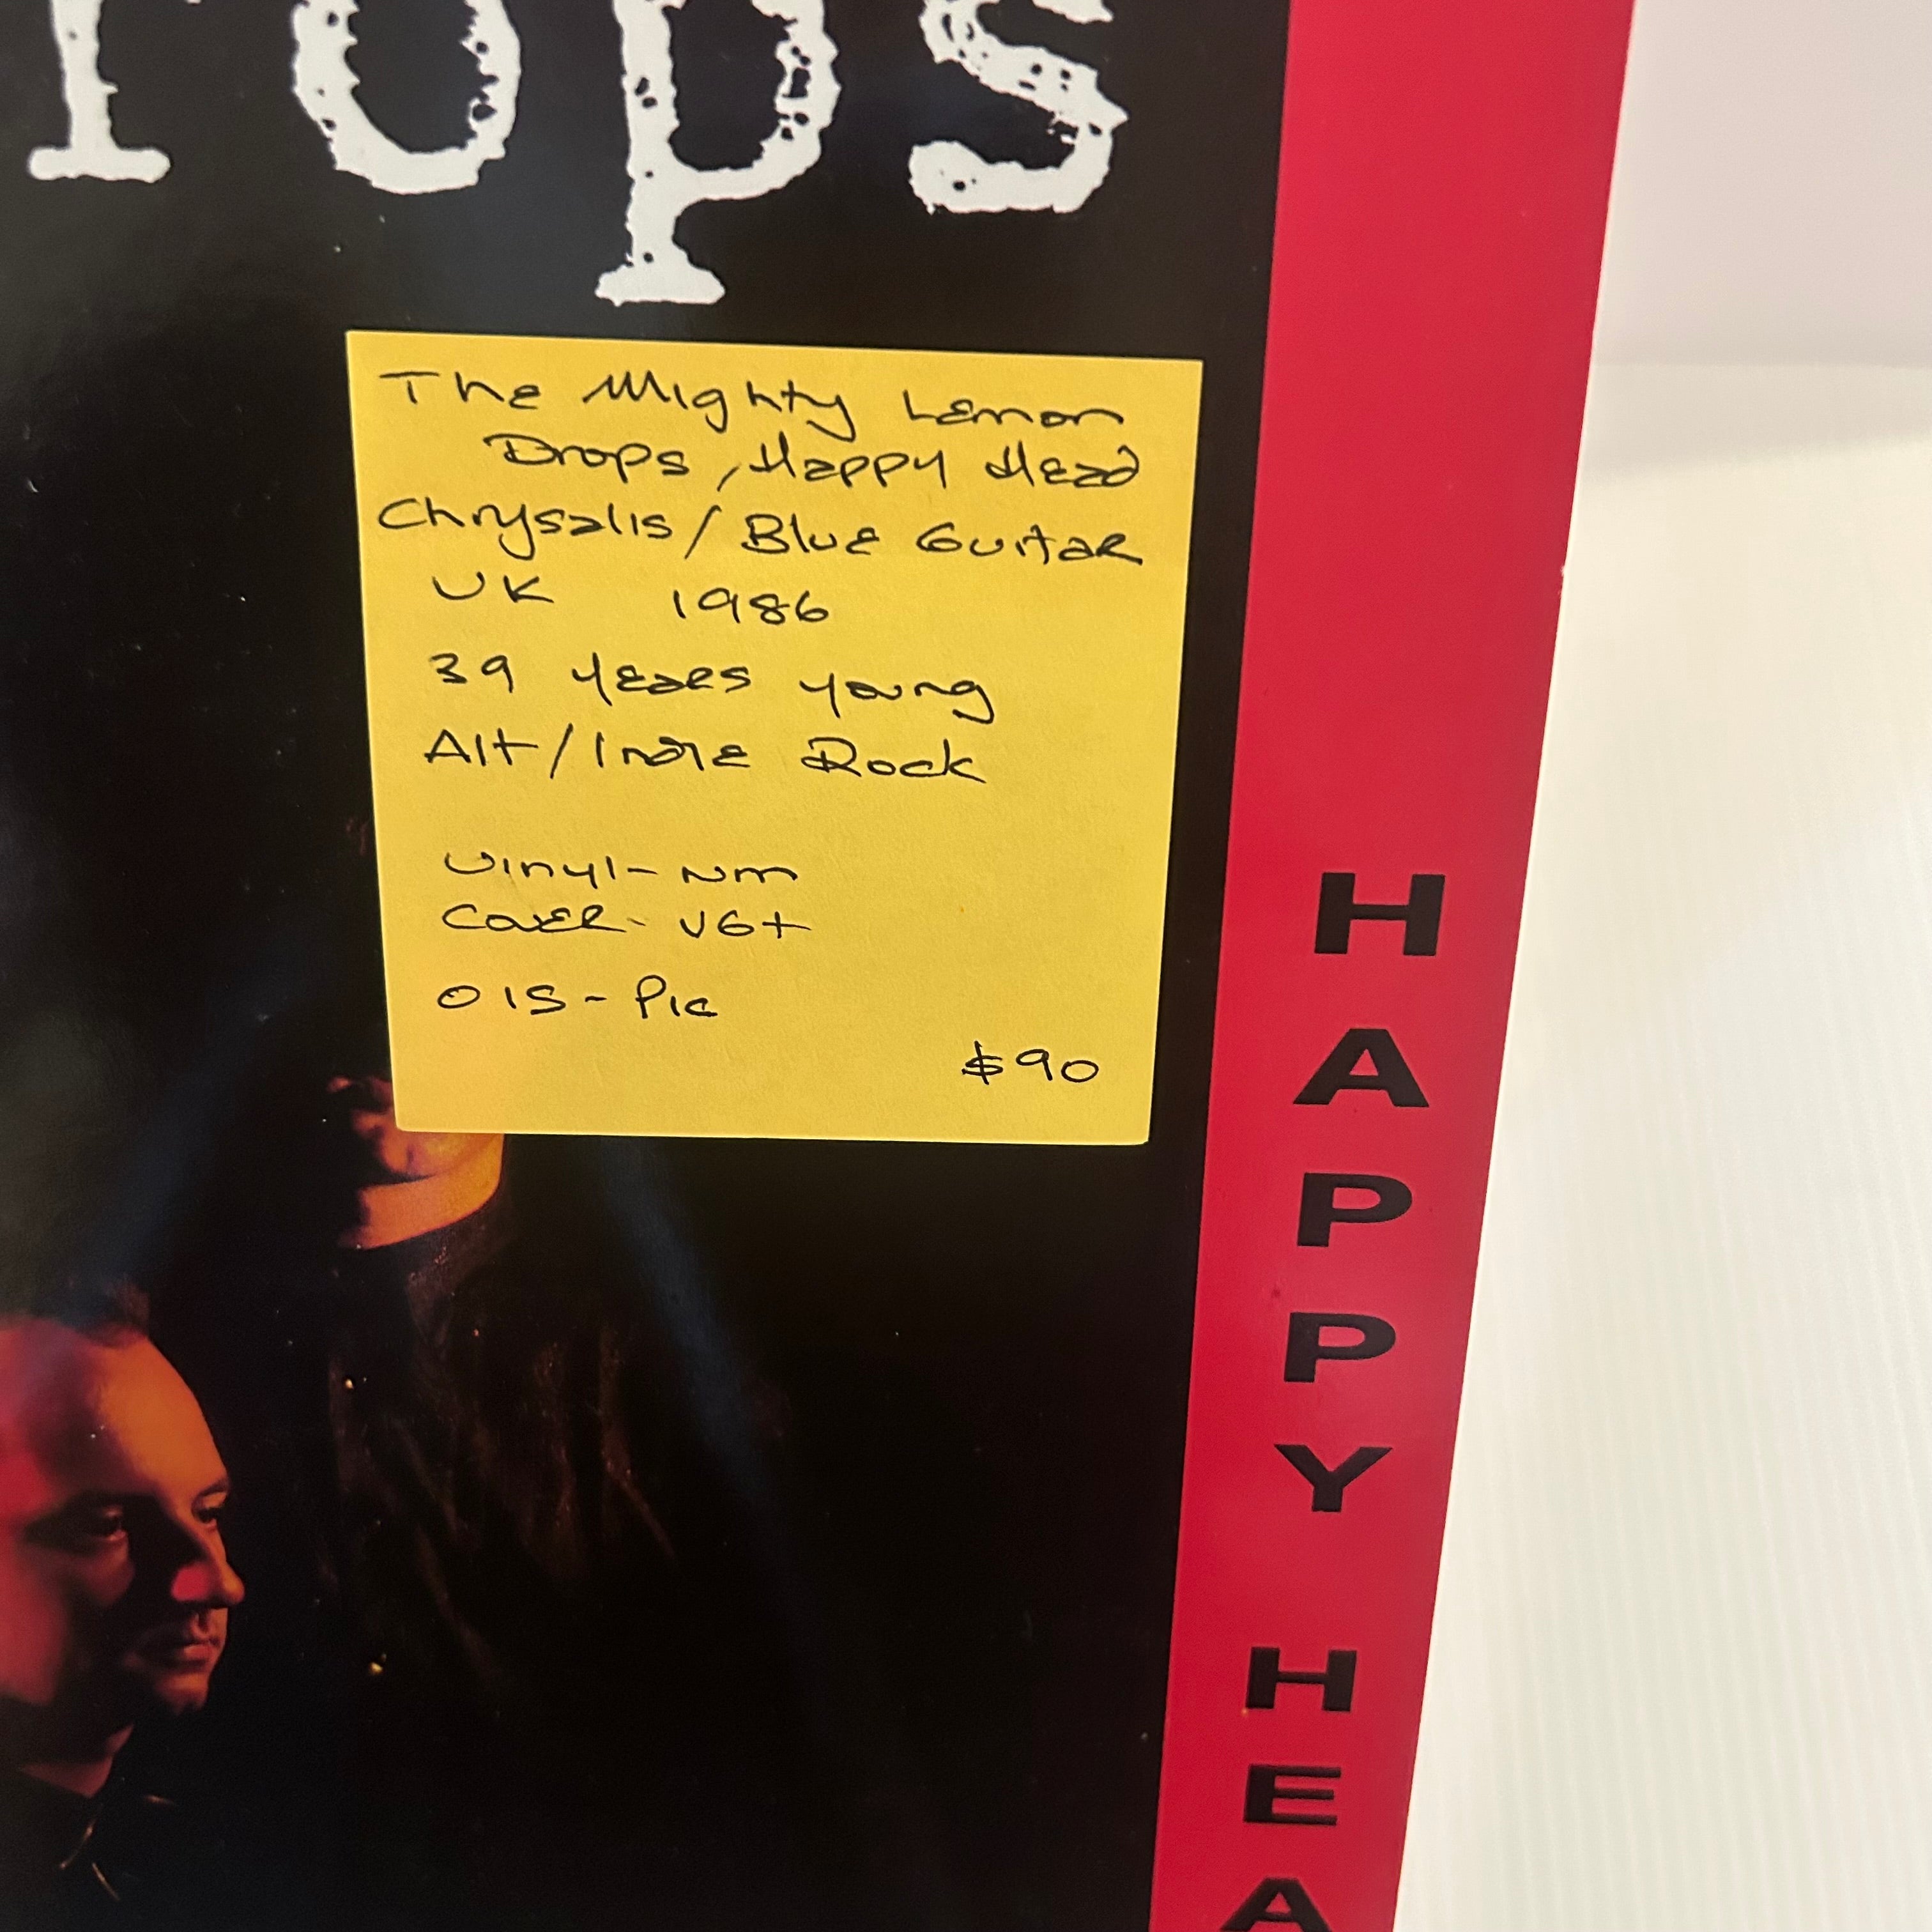 rops
The Mighty Lemon
Drops, Happy Head
Chrysalis/Blue Guitar
UK 1986
39 years young
Alt/Indie Rock
Vinyl- NM
Cover- VG+
OIS- Pic
$90
HAPPY HEA